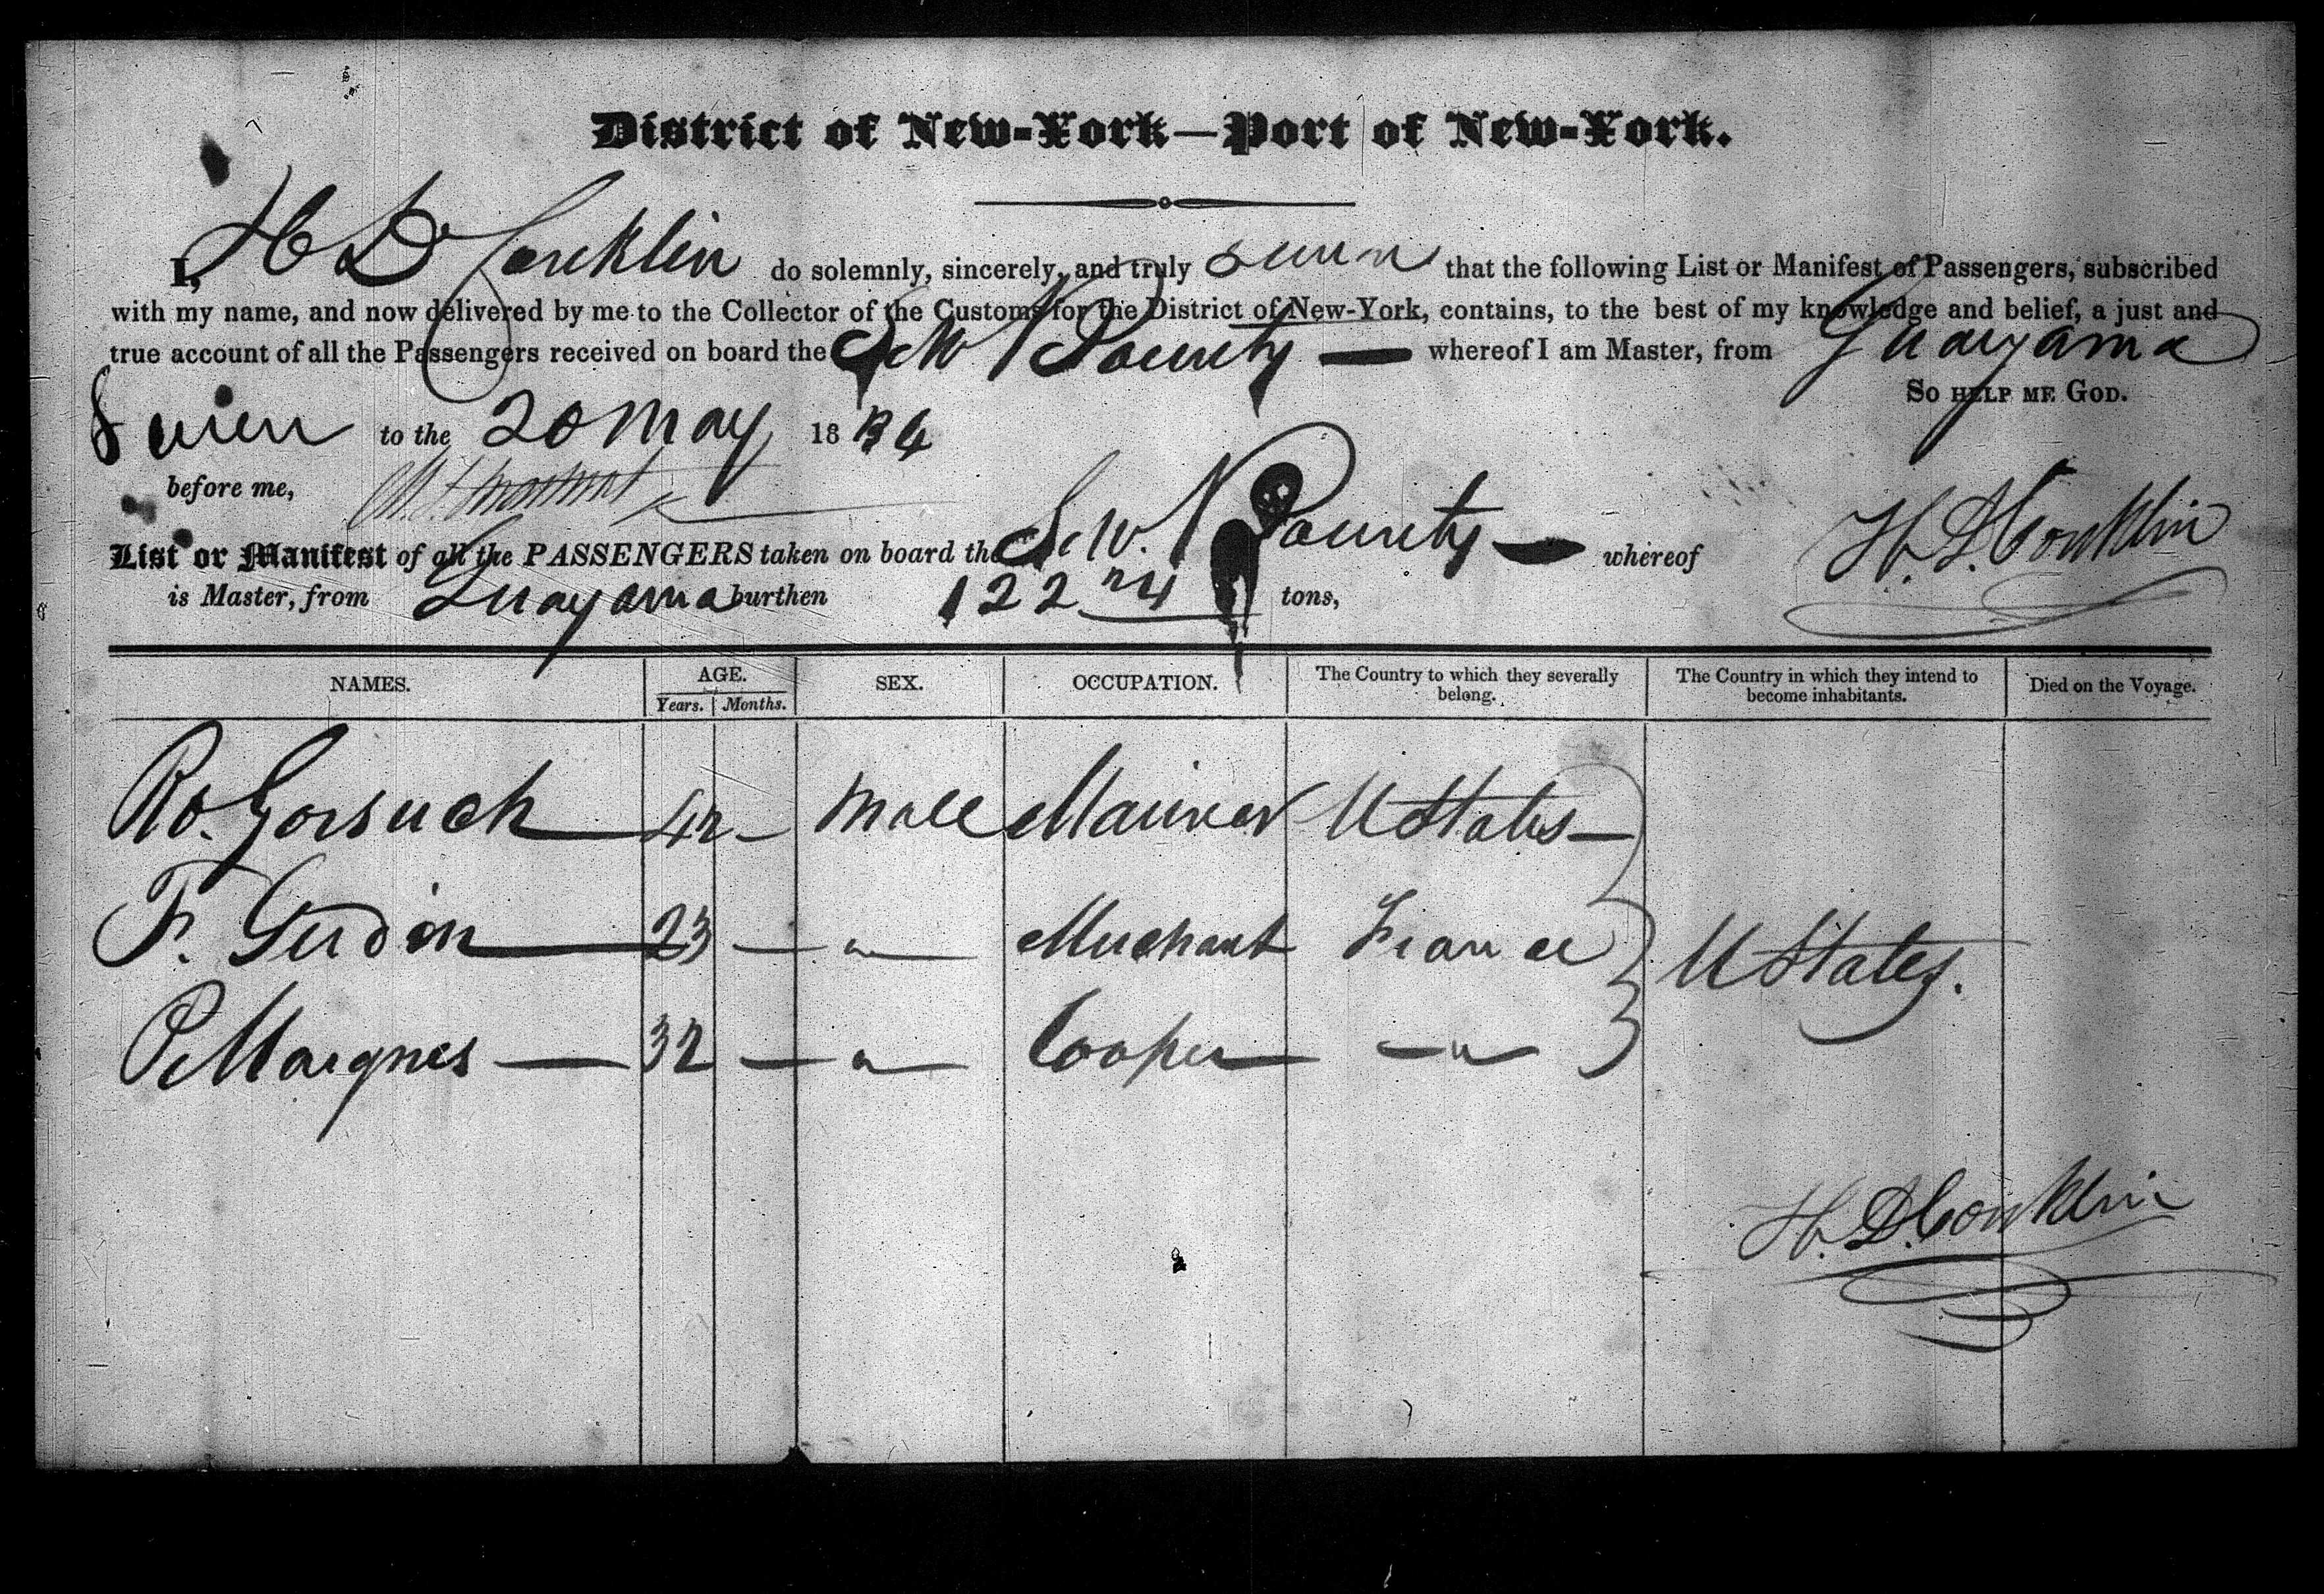 District of New-York—Port of New-York.
I, H D Concklin do solemnly, sincerely, and truly swear that the following List or Manifest of Passengers, subscribed
with my name, and now delivered by me to the Collector of the Customs for the District of New-York, contains, to the best of my knowledge and belief, a just and
true account of all the Passengers received on board the County — whereof I am Master, from Guayama
So help me God.
Sworn to the 20 May 1836
before me,
List or Manifest of all the PASSENGERS taken on board the County — whereof H. D. Conklin
is Master, from Guayama burthen 122 tons,
NAMES. AGE. SEX. OCCUPATION. The Country to which they severally belong. The Country in which they intend to become inhabitants. Died on the Voyage.
Years. Months.
Ro. Gorsuch — 42 — Male Mariner U States —
F. Gudon — 23 — " — Merchant France U States.
P Maignes — 32 — " — Cooper — " —
H. D. Conklin